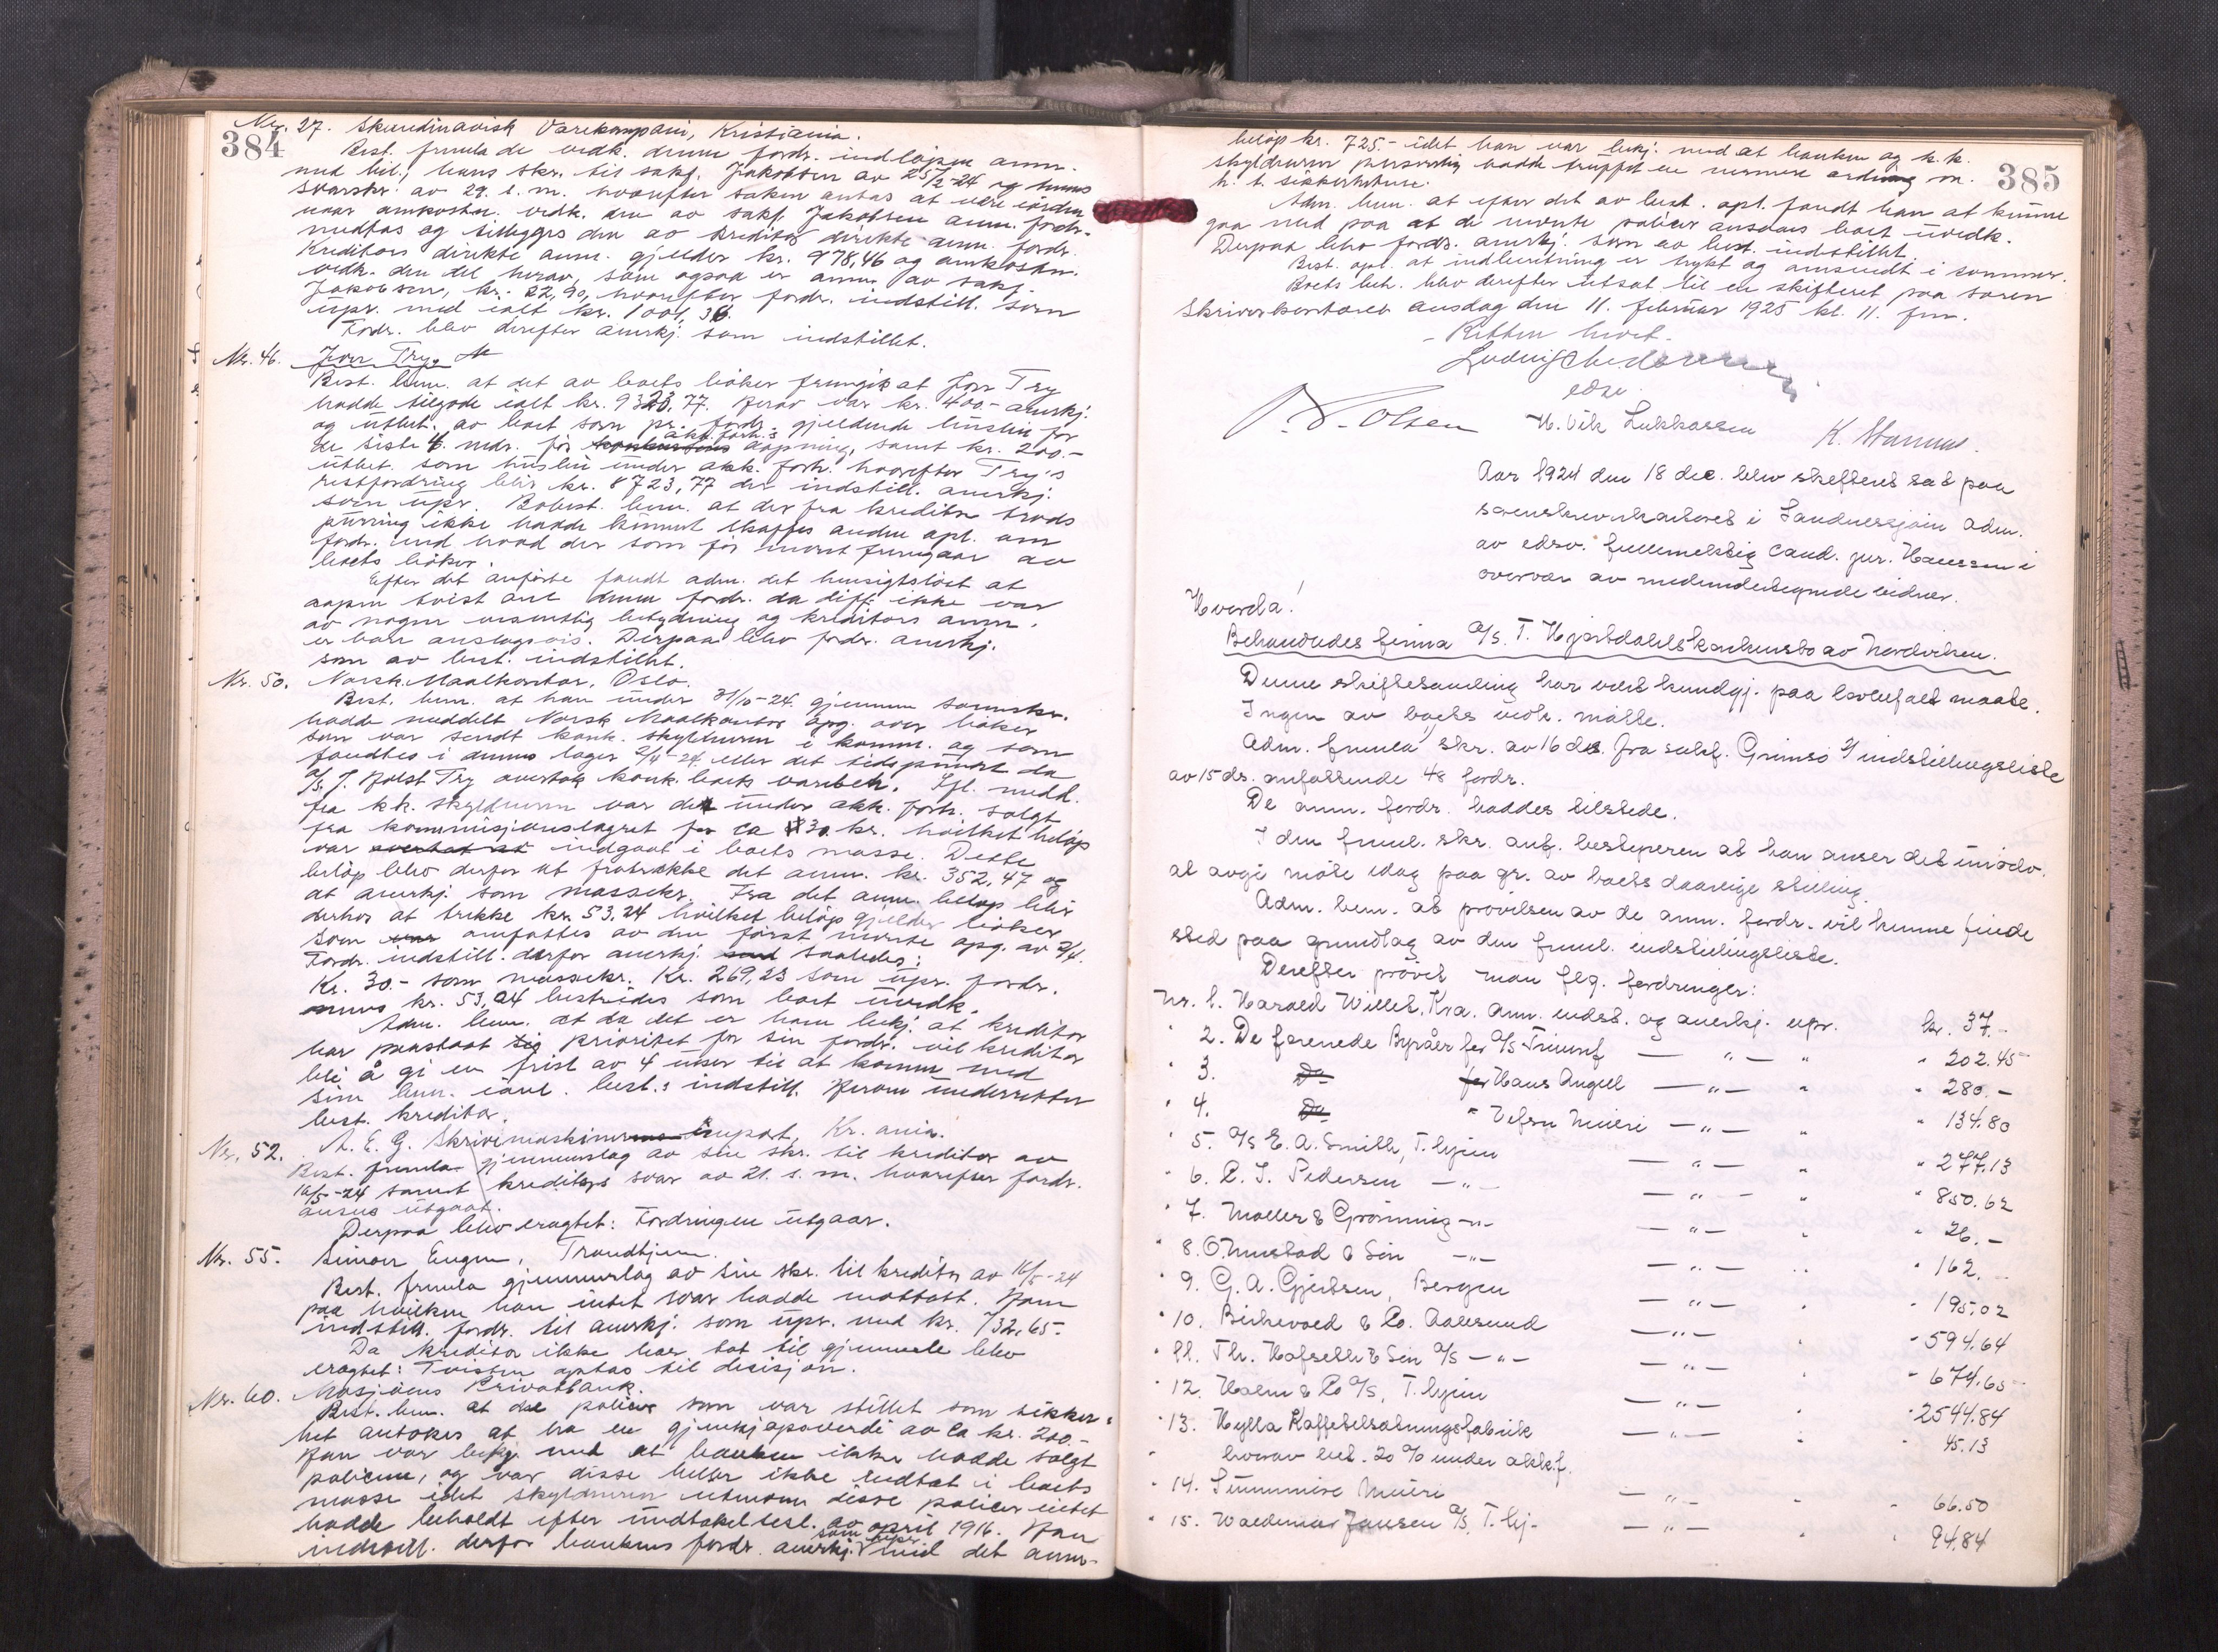 384
Nr. 27. Skandinavisk Varekompani, Kristiania.
Best. fremla de vedk. denne fordr. indløpne anm.
med bil., hans skr. til sakf. Jakobsen av 25/2-24 og hans
svarskr. av 29. s. m. hvorefter saken antas at være i orden
naar omkostn. vedk. den av sakf. Jakobsen anm. fordr.
medtas og tillegges den av kreditor direkte anm. fordr.
Kreditors direkte anm. gjelder kr. 978,46 og omkostn.
vedk. den del herav, som ogsaa er anm. av sakf.
Jakobsen, kr. 22,90, hvorefter fordr. indstill. som
upr. med ialt kr. 1001,36.
Fordr. blev derefter anerkj. som indstillet.
Nr. 46. Jon Try.
Best. bem. at det av boets bøker fremgik at Jon Try
hadde tilgode ialt kr. 9323,77. Herav var kr. 400,- anerkj.
og utbet. av boet som pr. fordr. gjeldende husleie for
de siste 4. mdr. før konkursens akk.forh.s aapning, samt kr. 200.-
utbet. som husleie under akk. forh. hvorefter Try's
restfordring blir kr. 8723,77 der indstill. anerkj.
som upr. Bobest. bem. at der fra kreditor trods
purring ikke hadde kunnet skaffes anden opl. om
fordr. end hvad der som før nevnt fremgaar av
boets bøker.
Efter det anførte fandt adm. det hensigtsløst at
aapne tvist ang. denne fordr. da diff. ikke var
av nogen vesentlig betydning og kreditors anm.
er bare anslagsvis. Derpaa blev fordr. anerkj.
som av best. indstillet.
Nr. 50. Norsk Maalkontor, Oslo.
Best. bem. at han under 31/10-24 gjennem
hadde meddelt Norsk Maalkontor opg. over bøker
som var sendt konk. skyldneren i komm. og som
fandtes i dennes lager 2/4-24 eller det tidspunkt da
A/S J. Holst Try overtok konk. boets varebeh. Ifl. medd.
fra kk. skyldneren var det under akk. forh. solgt
fra kommisjonslagret for ca 30 kr. hvilket beløp
var overtat at indgaat i boets masse. Dette
beløp blev derfor at fratrekke det anm. kr. 352,47 og
at anerkj. som massekr. Fra det anm. beløp blir
derhos at trekke kr. 53,24 hvilket beløp gjelder bøker
som var omfattes av den først nevnte opg. av 2/4.
Fordr. indstill. derfor anerkj. saaledes:
Kr. 30.- som massekr. Kr. 269,23 som upr. fordr.
mens kr. 53,24 bestrides som boet uvedk.
Adm. bem. at da det er ham bekj. at kreditor
har paastaat sig prioritet for sin fordr. vil kreditor
bli å gi en frist av 4 uker til at komme med
sine bem. i anl. best.s indstill. Herom underretter
best. kreditor.
Nr. 52. A. E. G. Skrivemaskinimport, Kr.ania.
Best. fremla gjennemslag av sin skr. til kreditor av
16/5-24 samt kreditors svar av 21. s. m. hvorefter fordr.
ansees utgaat.
Derpaa blev eragtet: Fordringen utgaar.
Nr. 55. Simon Engen, Trondhjem.
Best. fremla gjennemslag av sin skr. til kreditor av 16/5-24
paa hvilken han intet svar hadde mottatt. Han
indstill. fordr. til anerkj. som upr. med kr. 732,65.
Da kreditor ikke har tat til gjenmæle blev
eragtet: Tvisten optas til decisjon.
Nr. 60. Mosjøens Privatbank.
Best. bem. at de policer som var stillet som sikker-
het antokes at ha en gjenkjøpsverdi av ca kr. 200.-
Han var bekj. med at banken ikke hadde solgt
policene, og var disse heller ikke indtat i boets
masse idet skyldneren utenom disse policer intet
hadde beholdt efter undtakelsesl. av april 1916. Han
indstill. derfor bankens fordr. anerkj. som upr. med det anm.
385
beløp kr. 725.- idet han var bekj. med at banken og k.k.
skyldneren personlig hadde truffet en nermere ordning m.
h. t. sikkerhetene.
Adm. bem. at efter det av best. opl. fandt han at kunne
gaa med paa at de nevnte policer ansees boet uvedk.
Derpaa blev fordr. anerkj. som av best. indstillet.
Best. opl. at indberetning er trykt og omsendt i sommer.
Boets beh. blev derefter utsat til en skifteret paa soren-
skriverkontoret onsdag den 11. februar 1925 kl. 11. fm.
- Retten hævet -
edsv.
O. Olsen H. Vik Lukkassen K.
Aar 1924 den 18 dec. blev skifteret sat paa
sorenskriverkontoret i Sandnessjøen adm.
av edsv. fuldmektig cand. jur. Hanssen i
overvær av medundertegnede vidner.
Hvorda!
Behandledes firma A/S T. Hjortdahls konkursbo av Nordviken.
Denne skiftesamling har vært kundgj. paa lovbefalt maate.
Ingen av boets vedk. møtte.
Adm. fremla 1) skr. av 16 ds. fra sakf. Grimsø 2) indstillingsliste
av 15 ds. omfattende 48 fordr.
De anm. fordr. haddes tilstede.
I den freml. skr. anf. bestyreren at han anser det unødv.
at avgi møte idag paa gr. av boets daarlige stilling.
Adm. bem. at prøvelsen av de anm. fordr. vil kunne finde
sted paa grundlag av den freml. indstillingsliste.
Derefter prøvet man flg. fordringer:
Nr. 1. Harald Willet, Kra. anm. indst. og anerkj. upr. kr. 37.-
" 2. De forenede Byråer for A/S Triumf — " — " " 202.45
" 3. Do for Hans Angell — " — " " 280.-
" 4. Do " Vefsn Meieri — " — " " 134.80
" 5. A/S E. A. Smith, T.hjem — " — " " 277.13
" 6. P. I. Pedersen — " — — " — " " 850.62
" 7. Møller & Grønning — " — — " — " " 26.-
" 8. O. Mustad & Søn — " — — " — " " 162.
" 9. G. A. Gjertsen, Bergen — " — " " 195.02
" 10. Birkevold & Co. Aalesund — " — " " 594.64
" 11. Th. Hofseth & Søn A/S — " — — " — " " 674.65
" 12. Holm & Co A/S, T.hjem — " — " " 2544.84
" 13. Hylla Kaffetilsætningsfabrik — " — " " 45.13
hvorav utb. 20 % under akk.f.
" 14. Meieri — " — " " 66.50
" 15. Waldemar Jansen A/S, T.hj. — " — " " 94.84